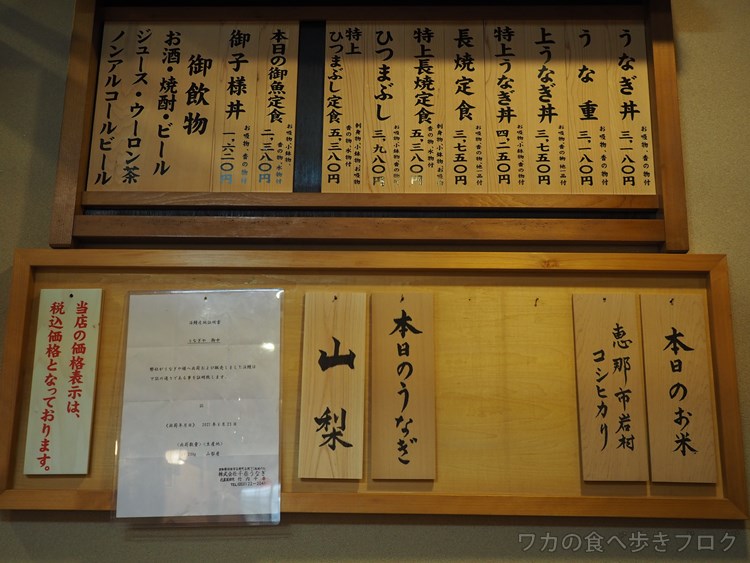 うなぎ丼 三、一八〇円
お吸物、香の物付
うな重 三、一八〇円
お吸物、香の物付
上うなぎ丼 三、七五〇円
お吸物、小鉢物
香の物(地一品付
特上うなぎ丼 四、二五〇円
お吸物、小鉢物
香の物(地一品付
長焼定食 三、七五〇円
お吸物、小鉢物
香の物(地一品付
特上長焼定食 五、三八〇円
刺身物、小鉢物、お吸物
香の物、水物付
ひつまぶし 三、九八〇円
お吸物、小鉢物
香の物付
特上
ひつまぶし定食 五、三八〇円
刺身物、小鉢物、お吸物
香の物、水物付
本日の御魚定食 二、三八〇円
お吸物、小鉢物、
香の物、水物付
御子様丼 一、六二〇円
お吸物、香の物付
御飲物
お酒・焼酎・ビール
ジュース・ウーロン茶
ノンアルコールビール
本日のお米
恵那市岩村
コシヒカリ
本日のうなぎ
山梨
当店の価格表示は、
税込価格となっております。
ワカの食べ歩きブログ